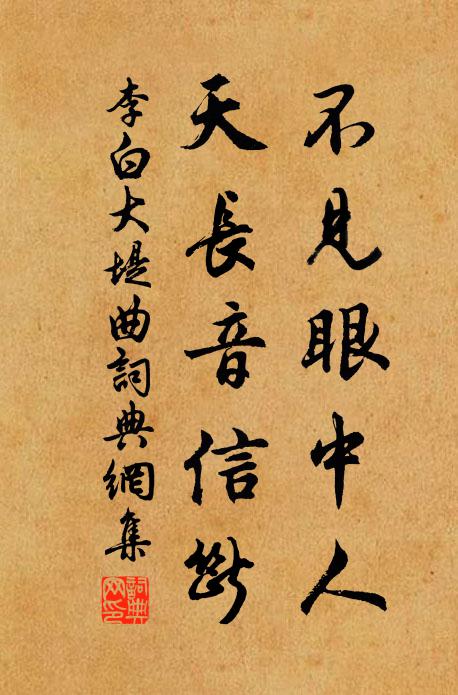 不見眼中人
天長音信斷
李白大堤曲詞典網集
詞典網印